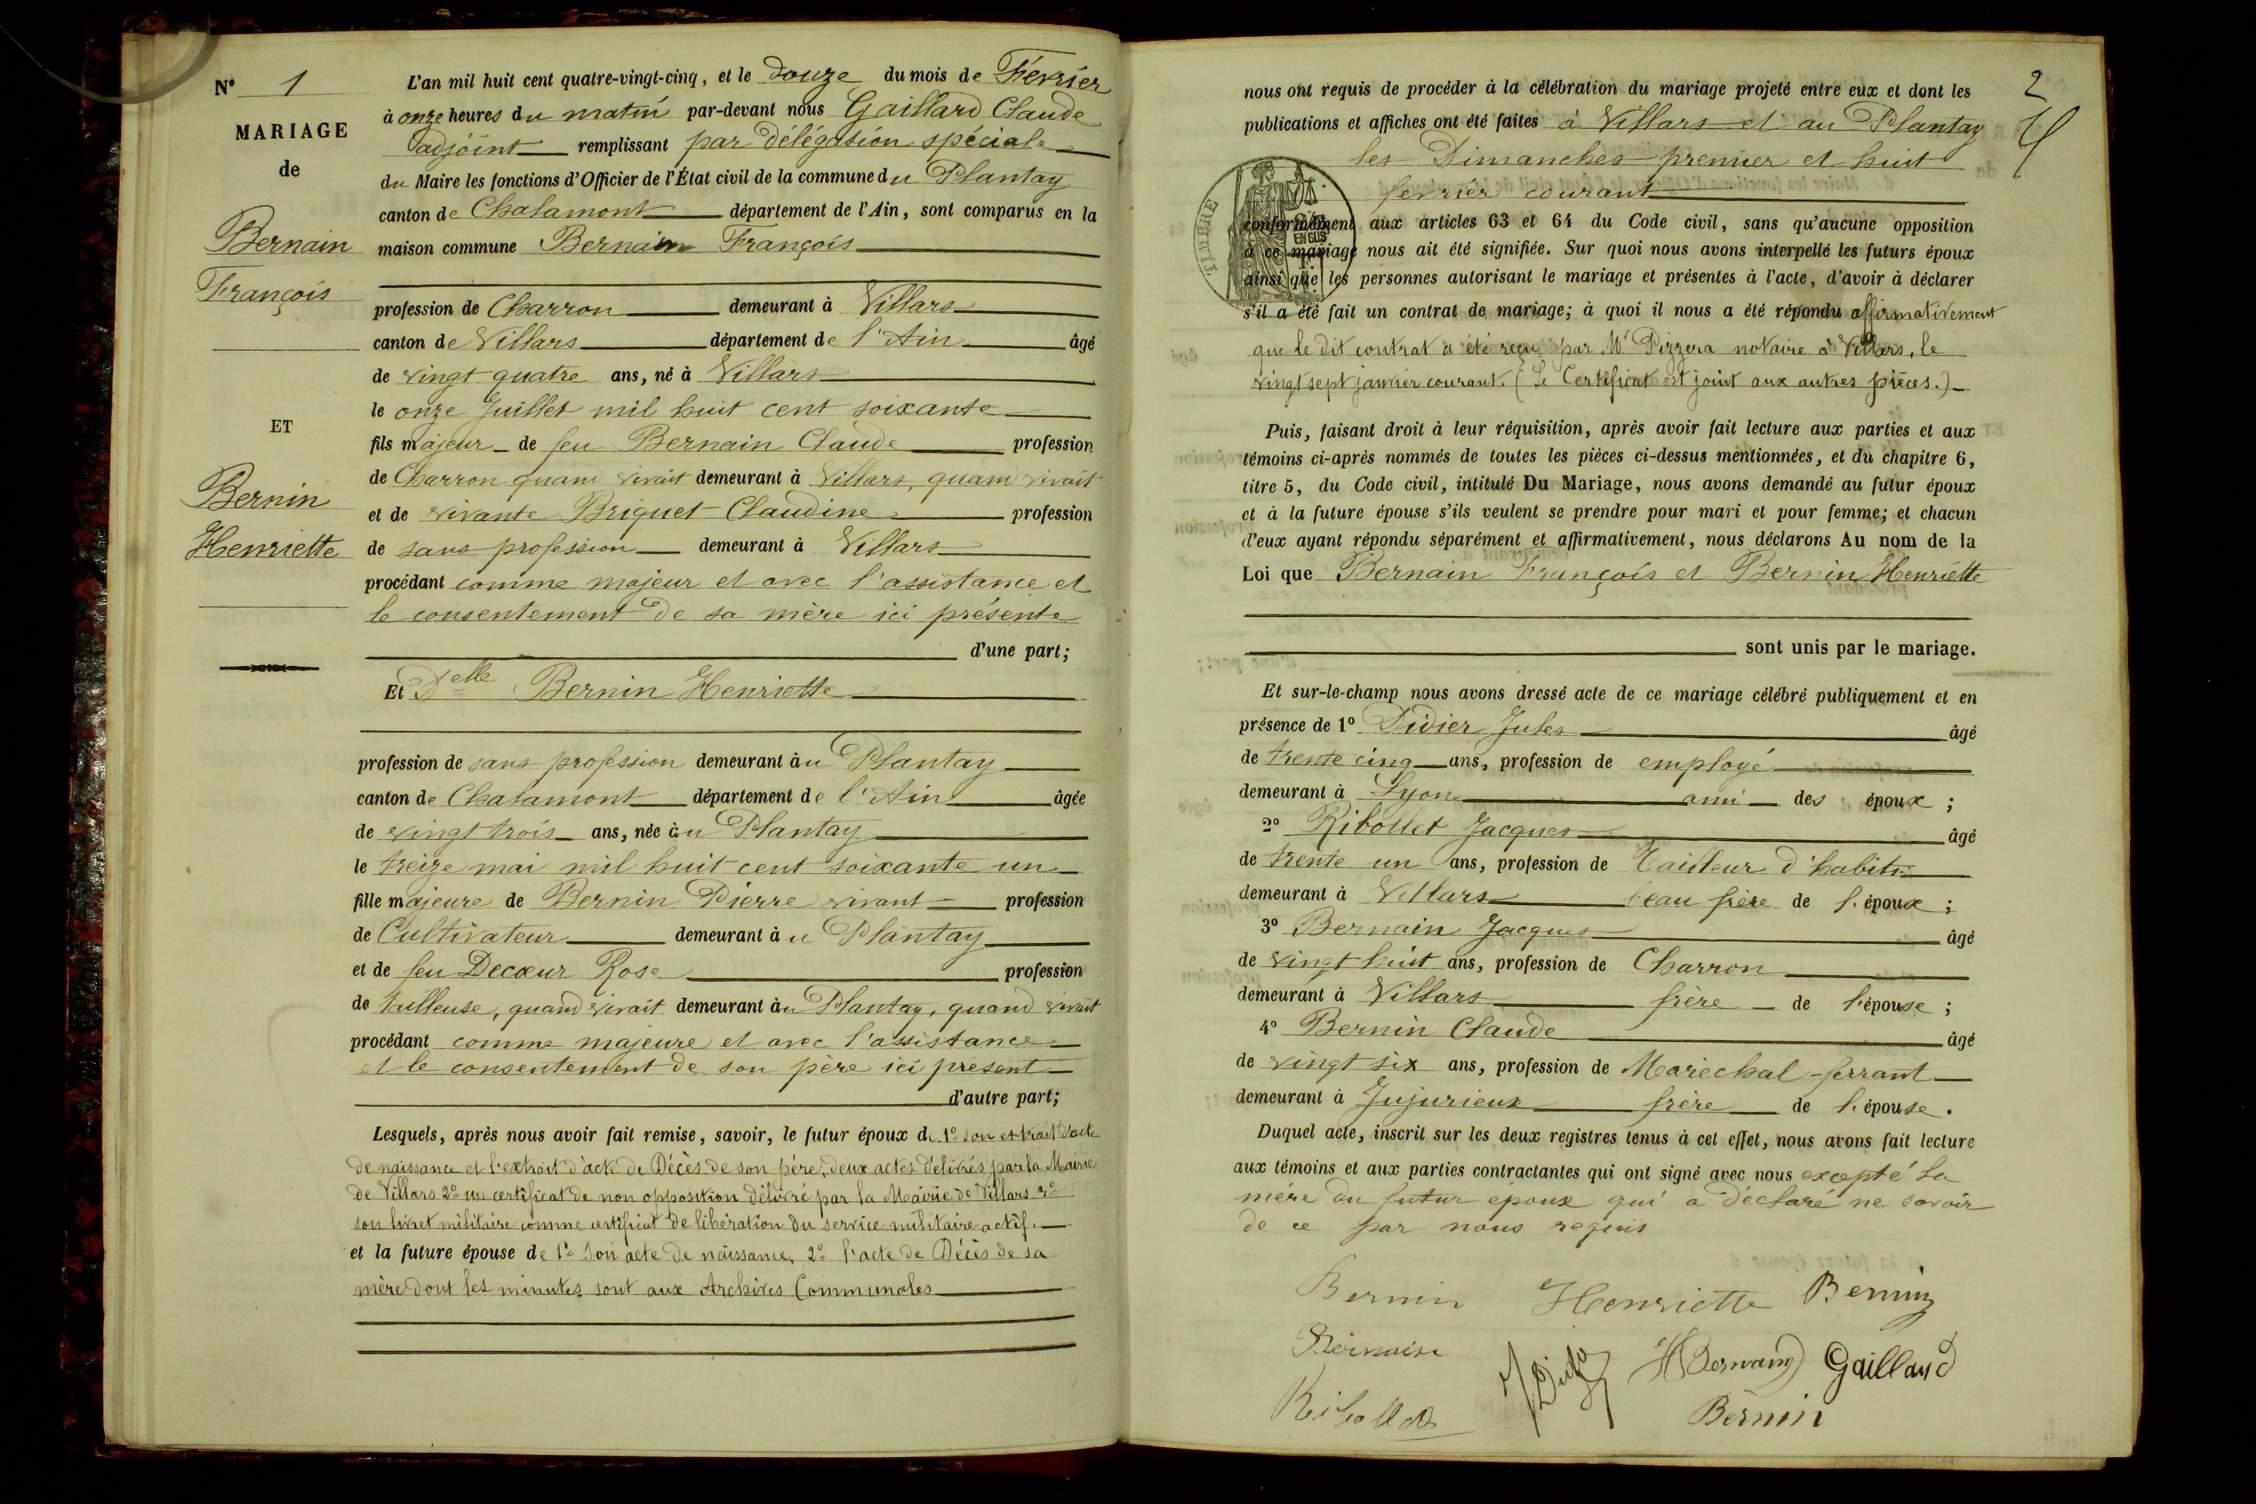 N° 1
MARIAGE
de
Bernain
François
ET
Bernin
Henriette
L'an mil huit cent quatre-vingt-cinq, et le douze du mois de Février
à onze heures du matin par-devant nous Gaillard Claude
adjoint remplissant par délégation spéciale
du Maire les fonctions d'Officier de l'État civil de la commune du Plantay
canton de Chalamont département de l'Ain, sont comparus en la
maison commune Bernain François
profession de Charron demeurant à Villars
canton de Villars département de l'Ain âgé
de vingt quatre ans, né à Villars
le onze Juillet mil huit cent soixante
fils majeur de feu Bernain Claude profession
de Charron quand vivait demeurant à Villars, quand vivait
et de vivante Briquet Claudine profession
de sans profession demeurant à Villars
procédant comme majeur et avec l'assistance et
le consentement de sa mère ici présente
d'une part;
Et Delle Bernin Henriette
profession de sans profession demeurant àu Plantay
canton de Chalamont département de l'Ain âgée
de vingt trois ans, née àu Plantay
le treize mai mil huit cent soixante un
fille majeure de Bernin Pierre vivant profession
de Cultivateur demeurant àu Plantay
et de feu Decœur Rose profession
de tulleuse, quand vivait demeurant àu Plantay, quand vivait
procédant comme majeure et avec l'assistance
et le consentement de son père ici présent
d'autre part;
Lesquels, après nous avoir fait remise, savoir, le futur époux de 1° son extrait d'acte
de naissance et l'extrait d'acte de Décès de son père, deux actes délivrés par la Mairie
de Villars 2° un certificat de non opposition délivré par la Mairie de Villars 3°
son livret militaire comme certificat de libération du service militaire actif.
et la future épouse de 1° son acte de naissance, 2° l'acte de Décès de sa
mère dont les minutes sont aux Archives Communales
2
nous ont requis de procéder à la célébration du mariage projeté entre eux et dont les
publications et affiches ont été faites à Villars et au Plantay
les Dimanches premier et huit
fevrier courant
TIMBRE
EN SUS
conformément aux articles 63 et 64 du Code civil, sans qu'aucune opposition
à ce mariage nous ait été signifiée. Sur quoi nous avons interpellé les futurs époux
ainsi que les personnes autorisant le mariage et présentes à l'acte, d'avoir à déclarer
s'il a été fait un contrat de mariage; à quoi il nous a été répondu affirmativement
que le dit contrat a été reçu par Mr Pizzera notaire à Villars, le
vingt sept janvier courant. (Le Certificat est joint aux autres pièces.)
Puis, faisant droit à leur réquisition, après avoir fait lecture aux parties et aux
témoins ci-après nommés de toutes les pièces ci-dessus mentionnées, et du chapitre 6,
titre 5, du Code civil, intitulé Du Mariage, nous avons demandé au futur époux
et à la future épouse s'ils veulent se prendre pour mari et pour femme; et chacun
d'eux ayant répondu séparément et affirmativement, nous déclarons Au nom de la
Loi que Bernain François et Bernin Henriette
sont unis par le mariage.
Et sur-le-champ nous avons dressé acte de ce mariage célébré publiquement et en
présence de 1° Didier Jules âgé
de trente cinq ans, profession de employé
demeurant à Lyon ami des époux ;
2° Ribollet Jacques âgé
de trente un ans, profession de Tailleur d'habits
demeurant à Villars beau frère de l'époux ;
3° Bernain Jacques âgé
de vingt huit ans, profession de Charron
demeurant à Villars frère de l'épouse ;
4° Bernin Claude âgé
de vingt six ans, profession de Maréchal-ferrant
demeurant à Jujurieux frère de l'épouse.
Duquel acte, inscrit sur les deux registres tenus à cet effet, nous avons fait lecture
aux témoins et aux parties contractantes qui ont signé avec nous excepté la
mère du futur époux qui a déclaré ne savoir
de ce par nous requis
Bernin Henriette Bernin
Bernain Bernain Gaillard
Ribollet Bernin